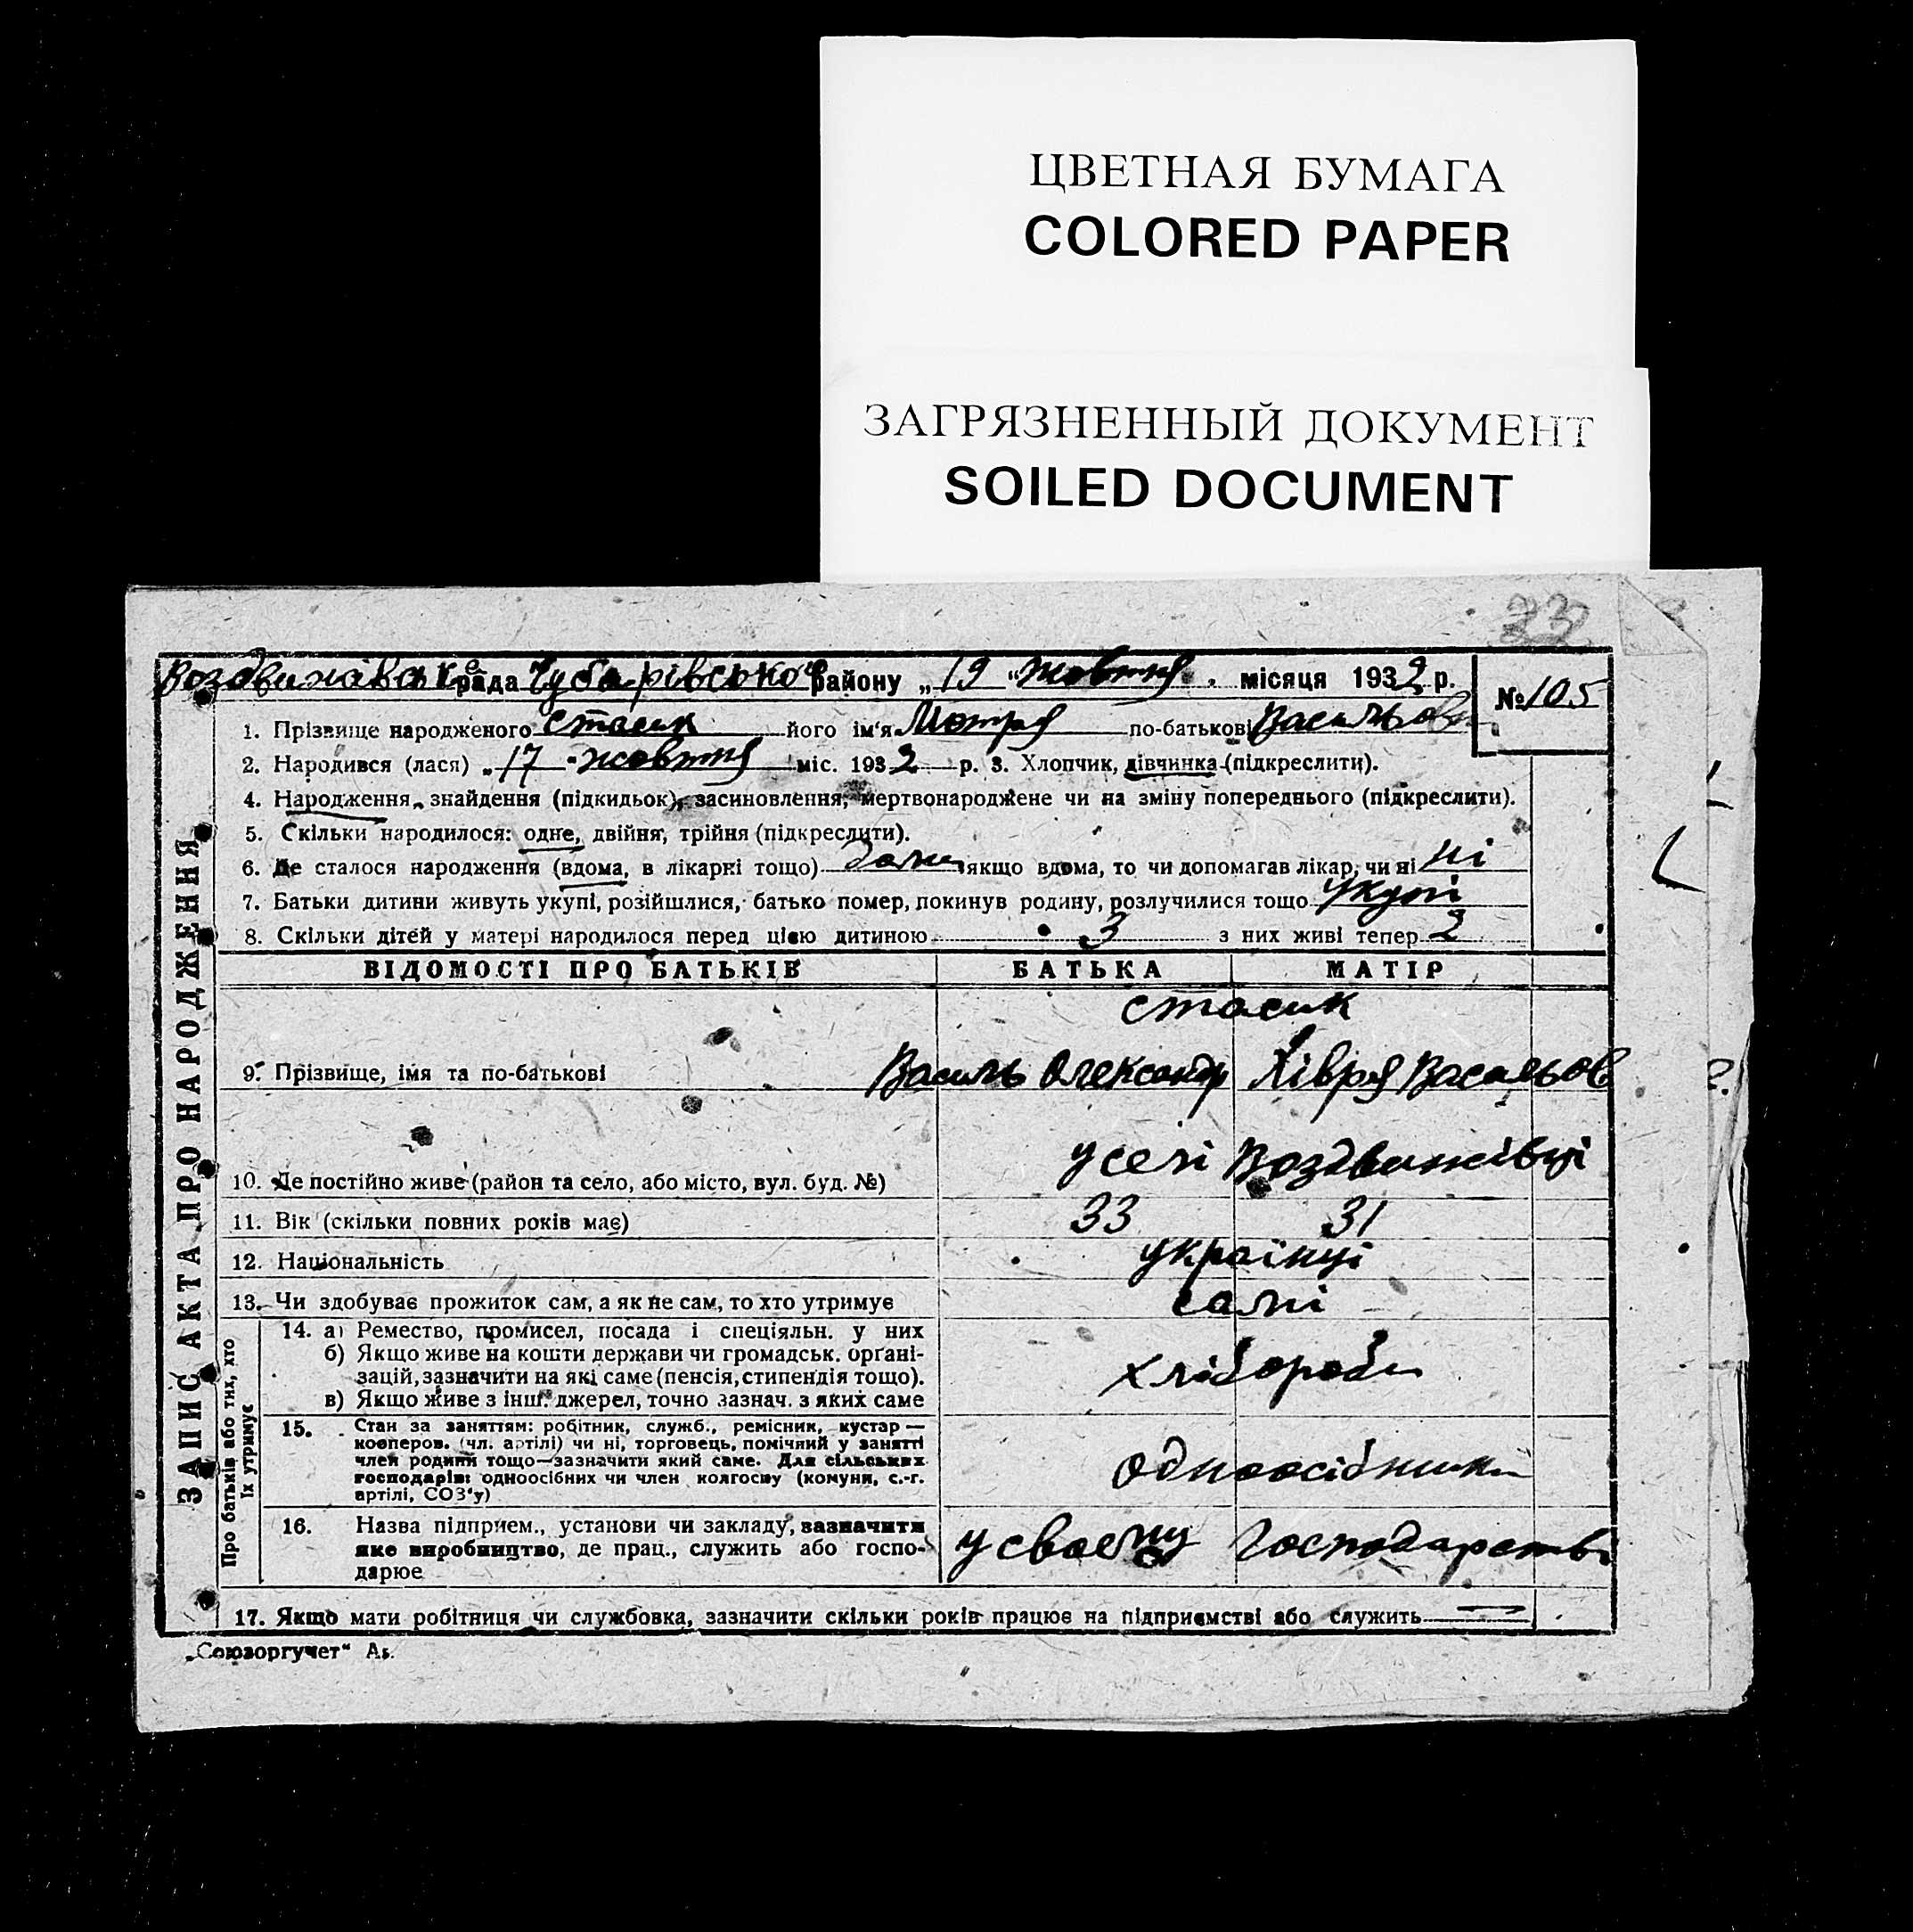 ЦВЕТНАЯ БУМАГА
COLORED PAPER
ЗАГРЯЗНЕННЫЙ ДОКУМЕНТ
SOILED DOCUMENT
рада Чубарівського району „19“ жовтня місяця 1932 р.
№ 105
1. Прізвище народженого Стасик його ім‘я Мотря по-батькові Васильовн
2. Народився (лася) „17“ жовтня міс. 1932 р. 3. Хлопчик, дівчинка (підкреслити).
4. Народження, знайдення (підкидьок), засиновлення, мертвонароджене чи на зміну попереднього (підкреслити).
5. Скільки народилося: одне, двійня, трійня (підкреслити).
6. Де сталося народження (вдома, в лікарні тощо) якщо вдома, то чи допомагав лікар, чи ні ні
7. Батьки дитини живуть укупі, розійшлися, батько помер, покинув родину, розлучилися тощо укупі
8. Скільки дітей у матері народилося перед цією дитиною 3 з них живі тепер 2
ВІДОМОСТІ ПРО БАТЬКІВ БАТЬКА МАТІР
Стасик
9. Прізвище, імя та по-батькові Василь Олександр Хівря Васильов
10. Де постійно живе (район та село, або місто, вул. буд. №) у селі Воздвижівці
11. Вік (скільки повних років має) 33 31
12. Національність українці
13. Чи здобуває прожиток сам, а як не сам, то хто утримує самі
14. а) Ремество, промисел, посада і спеціяльн. у них
б) Якщо живе на кошти держави чи громадськ. орґані-
зацій, зазначити на які саме (пенсія, стипендія тощо).
в) Якщо живе з інш. джерел, точно зазнач. з яких саме
хлібороби
15. Стан за заняттям: робітник, служб., ремісник, кустар —
кооперов. (чл. артілі) чи ні, торговець, помічний у занятті
член родини тощо—зазначити який саме. Для сільських
господарів: одноосібних чи член колгоспу (комуни, с.-г.
артілі, СОЗ‘у)
одноосібники
16. Назва підприєм., установи чи закладу, зазначити
яке виробництво, де прац., служить або госпо-
дарює
у своєму господарстві
17. Якщо мати робітниця чи службовка, зазначити скільки років працює на підприємстві або служить —
ЗАПИС АКТА ПРО НАРОДЖЕННЯ
Про батьків або тих, хто
їх утримує
„Союзоргучет“